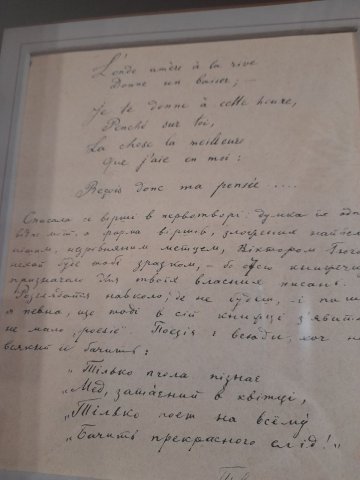 L'onde amère à la rive
Donne son baiser; —
Je te donne à cette heure,
Penché sur toi,
La chose la meilleure
Que j'aie en moi:
Reçois donc ma pensée.....
Списала се вірші в первотворі: думка їх
а форма віршів, зложених
Віктором Гюго
нехай буде тобі зразком, — бо всю книжечку
призначаю для твоїх власних писань.
Роззирайся навколо, де не будеш, і пиши
я певна, що тобі в сій книжці з'явить
не мало „poesie“ Поезія є всюди, хоч не
всякий її бачить:
„Тілько пчола пізнає
„Мед, затаєний в квітці,
„Тілько поет на всёму
„Бачить прекрасного слід!“